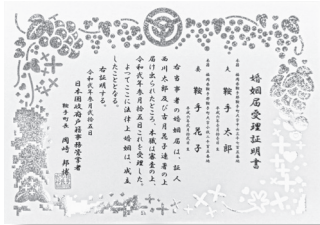 婚姻届受理証明書
夫 鞍手太郎
妻 鞍手花子
右当事者の婚姻届は、証人
西川太郎及び古月花子連署の上
届け出られたところ、本職は審査の上
令和弐年参月弐拾五日これを受理した。
よってここに法律上婚姻は、成立
したことになる。
右証明する。
令和弐年参月弐拾五日
日本国政府戸籍事務管掌者
鞍手町長 岡崎邦博